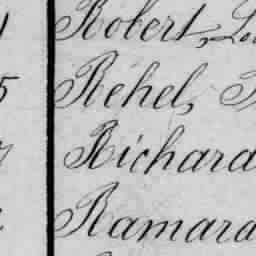 Robert, Lou
Rehel,
Richard
Ramard